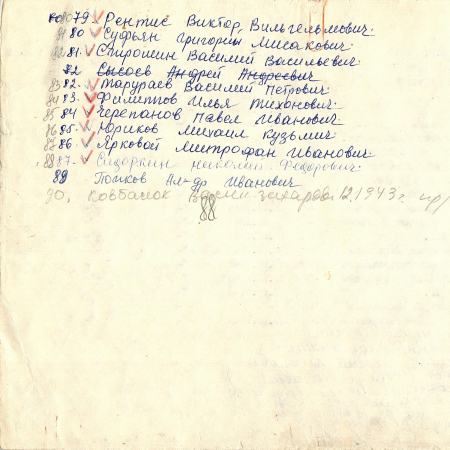 79. Рентис Виктор Вильгельмович.
80 Суфьян Григорий Мисакович.
81. Спирошин Василий Васильевич.
82 Сысоев Андрей Андреевич
82. Тарураев Василий Петрович
83. Филиппов Илья Тихонович.
84 Черепанов Павел Иванович.
85. Юриков Михаил Кузьмич
86. Ярковой Митрофан Иванович
87. Сидоркин Николай Федорович.
89 Попков Ал-др Иванович
90. Ковбасюк 12.1943г.
88